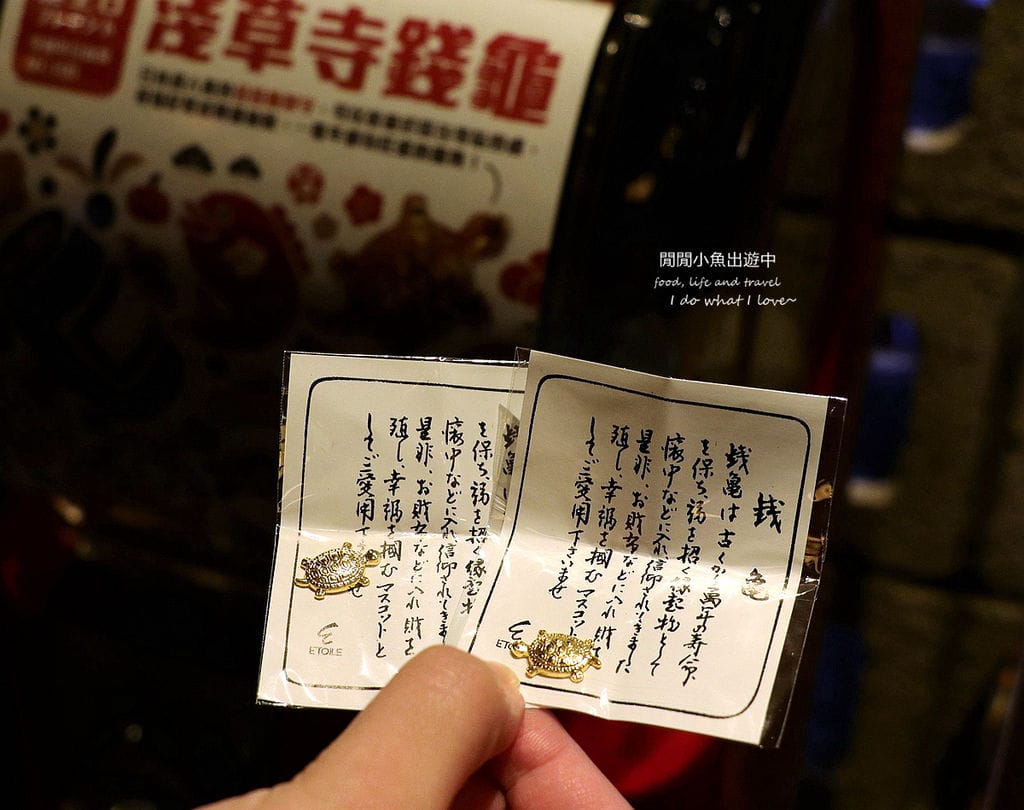 淺草寺錢龜
閒閒小魚出遊中
food, life and travel
I do what I love~
銭亀は
を保ち、福を招く縁起物
懐中などに入れ、信仰されてきま
是非、お財布などに入れ財を
殖し、幸福を掴むマスコットと
してご愛用
ETOILE
銭亀
銭亀は古くから萬年の寿命
を保ち、福を招く縁起物として
懐中などに入れ、信仰されてきました
是非、お財布などに入れ財を
殖し、幸福を掴むマスコットと
してご愛用下さいませ